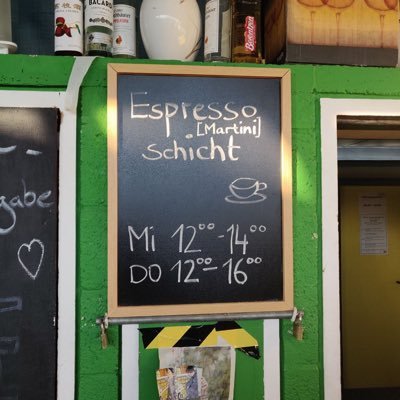 BACARDI
Espresso
[Martini]
schicht
Mi 12⁰⁰-14⁰⁰
DO 12⁰⁰-16⁰⁰
gabe